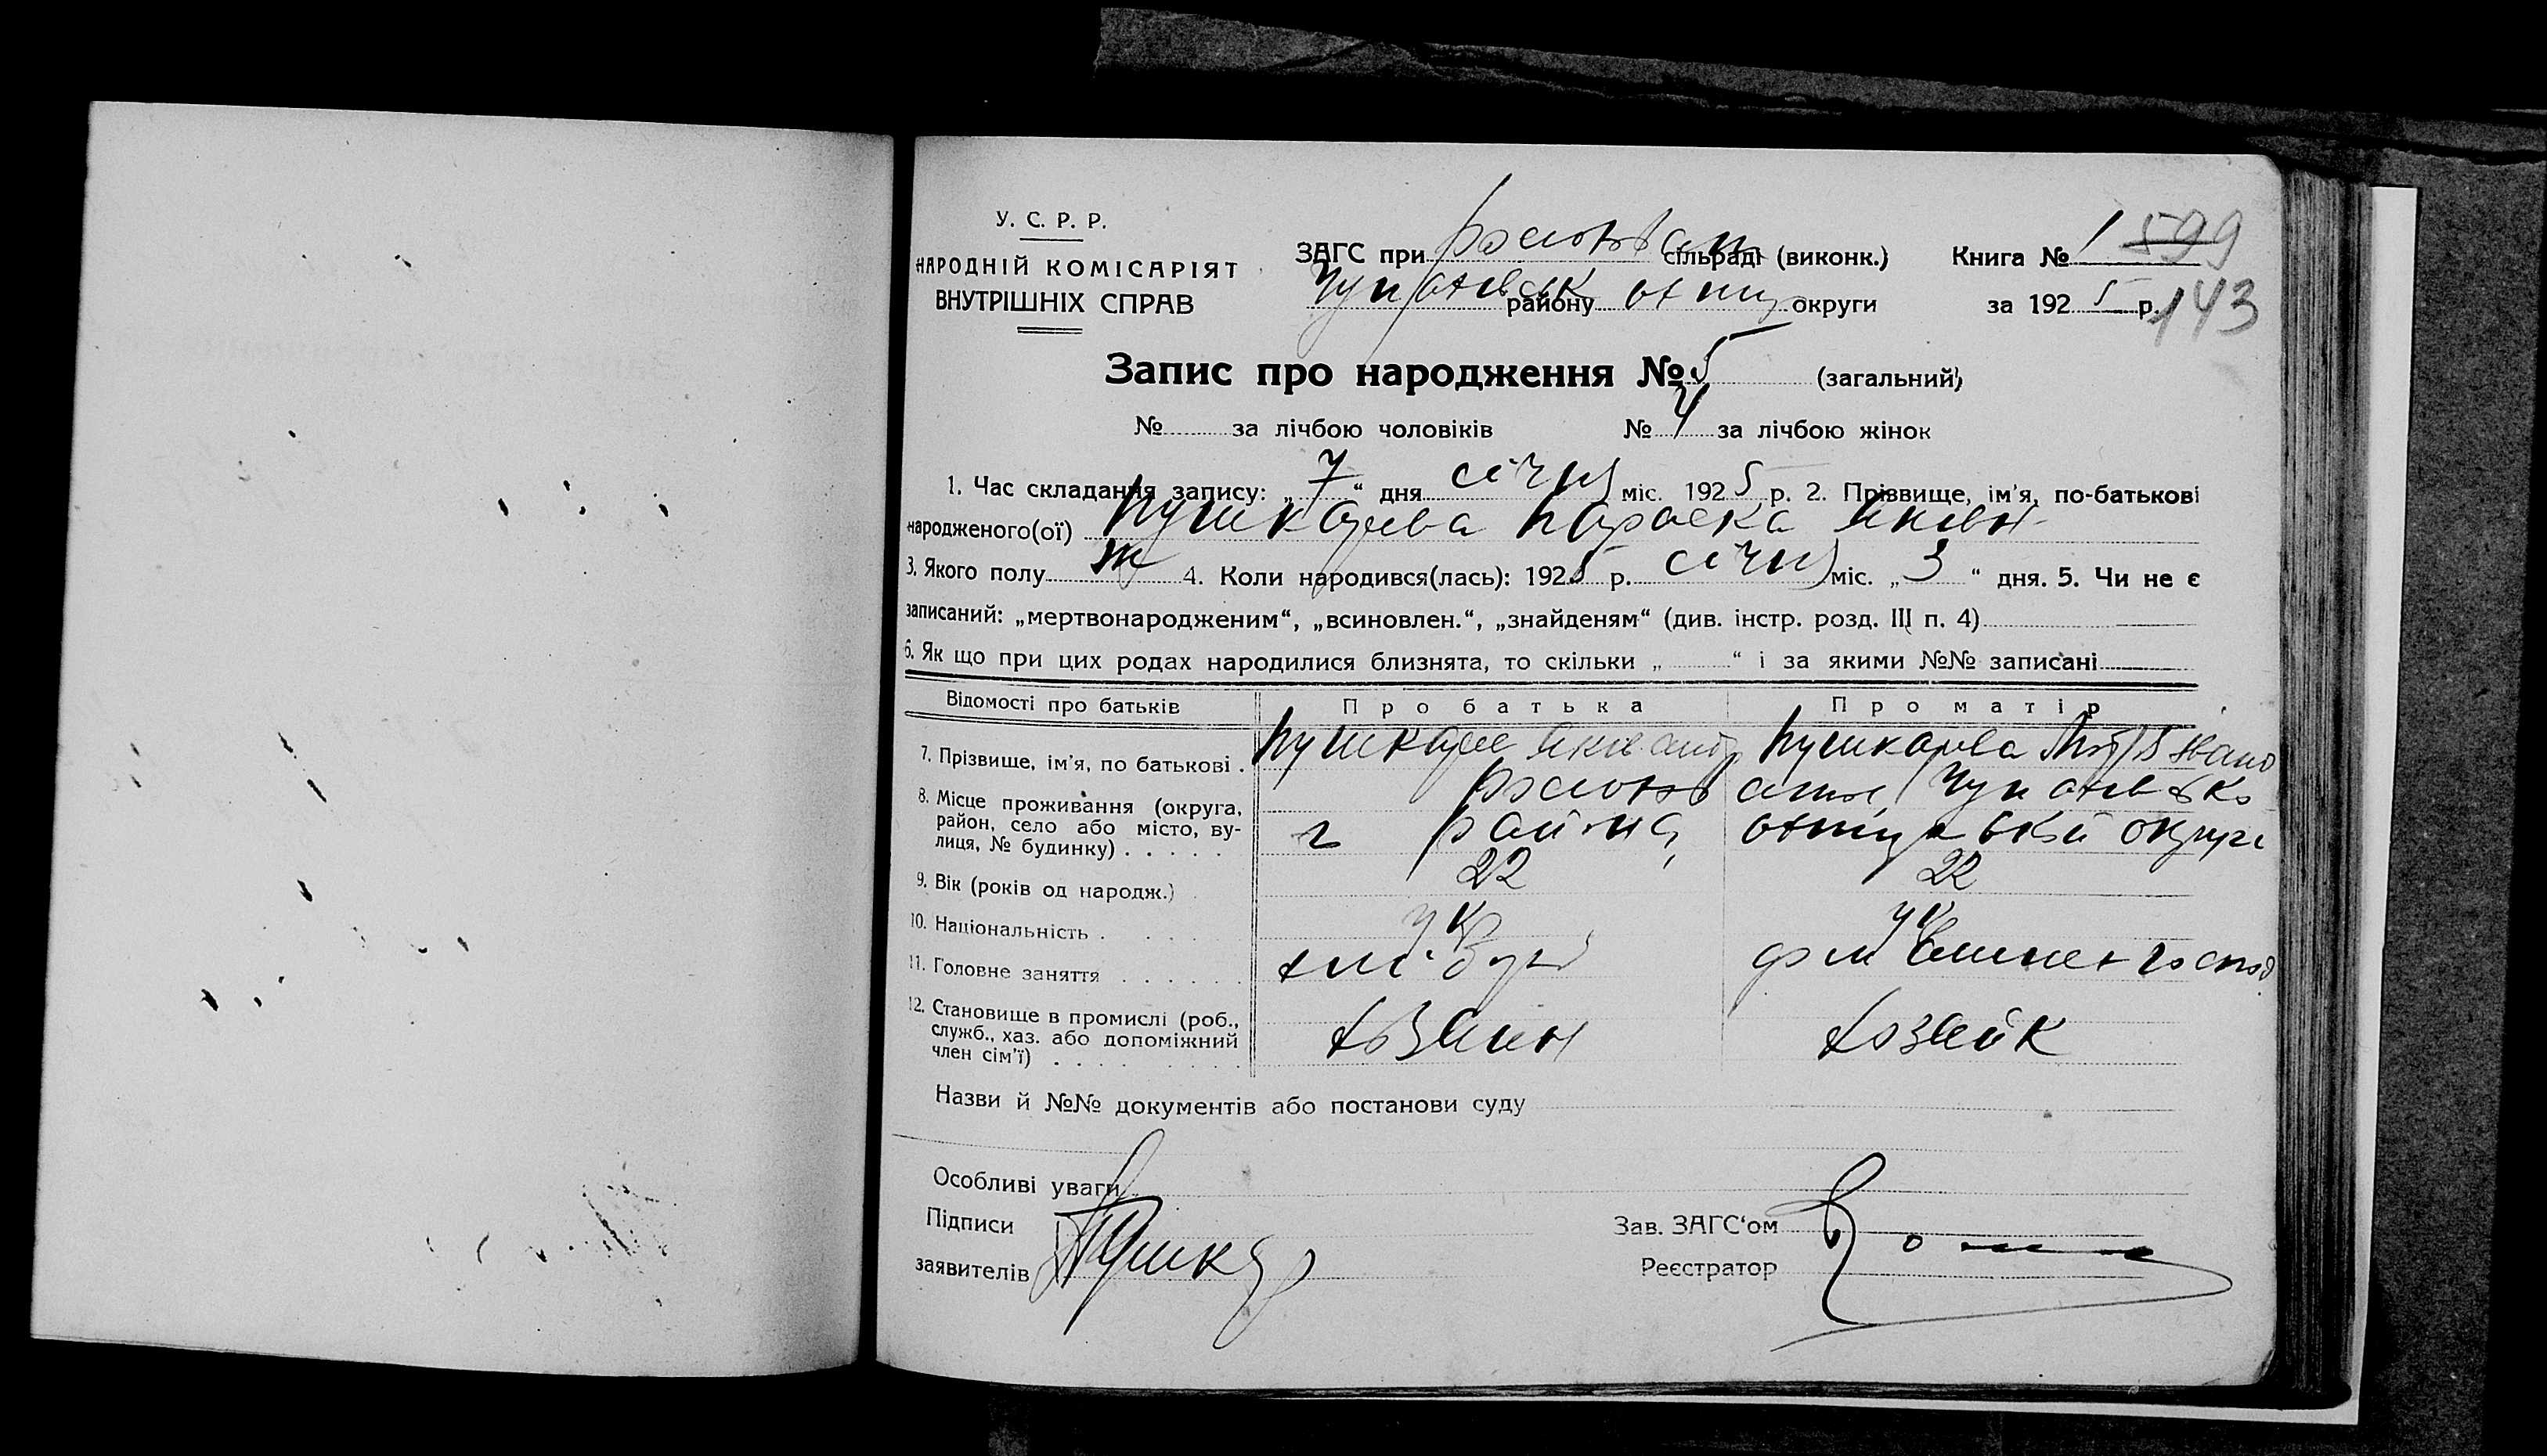 У. С. Р. Р.
НАРОДНІЙ КОМІСАРІЯТ
ВНУТРІШНІХ СПРАВ
ЗАГС при сільраді (виконк.)
району округи
Книга № 1 599
за 1925 р. 143
Запис про народження № 5 (загальний)
№ за лічбою чоловіків № 4 за лічбою жінок
1. Час складання запису: „7“ дня січня міс. 1925 р. 2. Прізвище, ім'я, по-батькові
народженого(ої) Пушкарева Параска Яківн
3. Якого полу ж 4. Коли народився(лась): 1925 р. січня міс. „3“ дня. 5. Чи не є
записаний: „мертвонародженим“, „всиновлен.“, „знайденям“ (див. інстр. розд. III п. 4)
6. Як що при цих родах народилися близнята, то скільки „ “ і за якими №№ записані
Відомості про батьків Про батька Про матір
7. Прізвище, ім'я, по батькові . Пушкар Яків Пушкарева
8. Місце проживання (округа,
район, село або місто, ву-
лиця, № будинку) . . . . . району округи
9. Вік (років од народж.) 22 22
10. Національність . . . . . Укр Ук
11. Головне заняття . . . . . . хлібор дом господ
12. Становище в промислі (роб.,
служб., хаз. або допоміжний
член сім'ї) . . . . . . . хозяин хозяйк
Назви й №№ документів або постанови суду
Особливі уваги
Підписи
заявителів Пушкар
Зав. ЗАГС'ом
Реєстратор